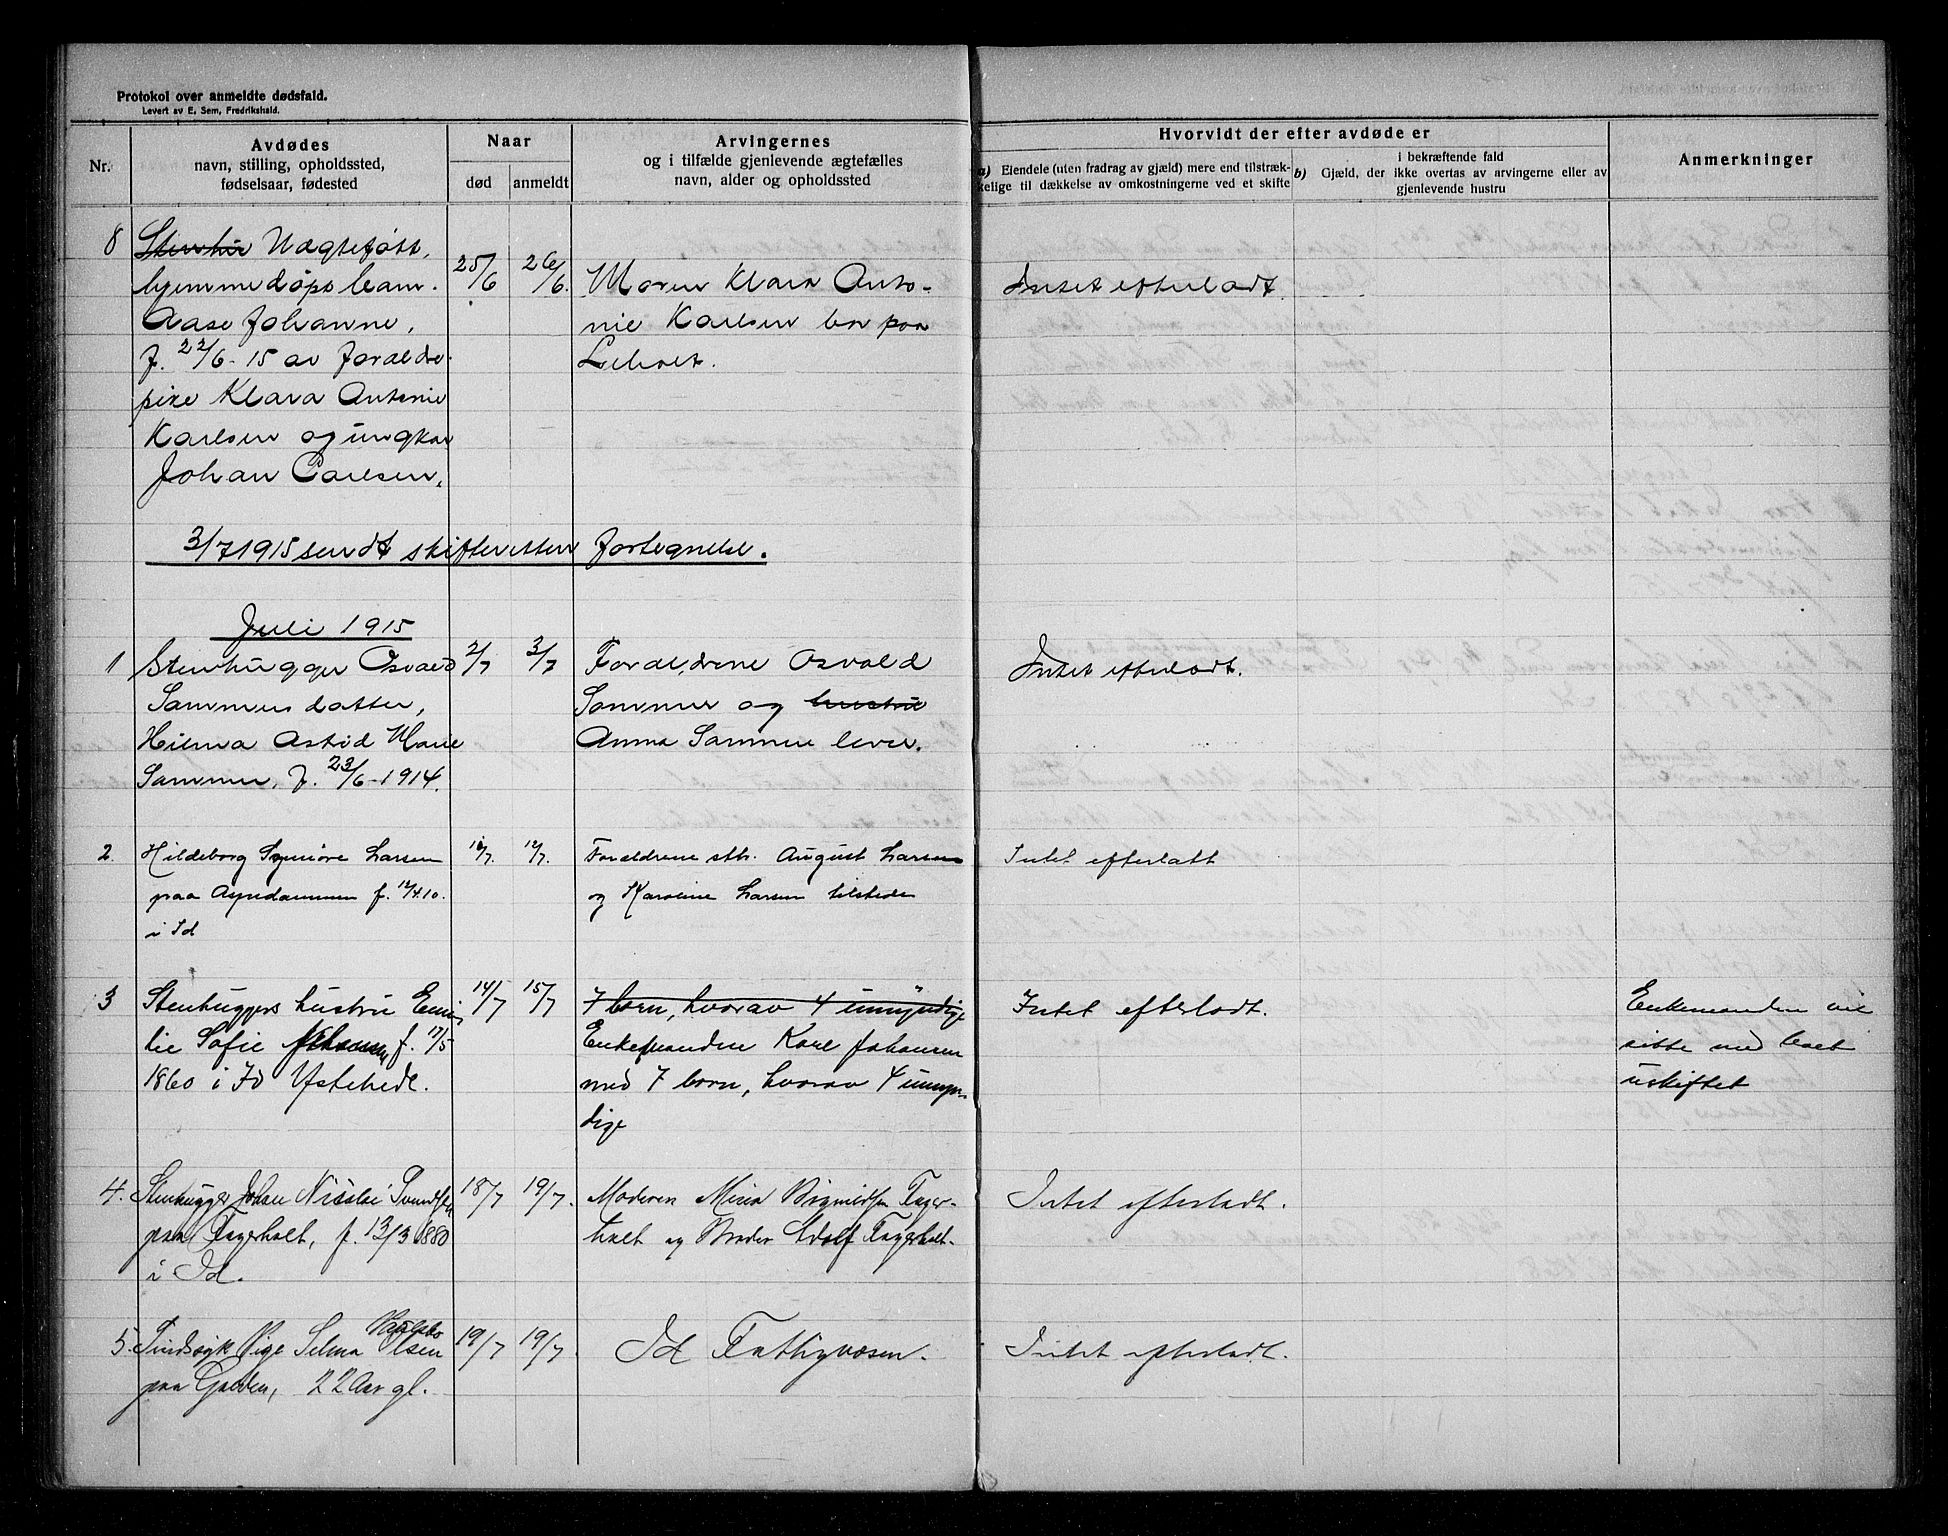 Protokol over anmeldte dødsfald.
Levert av E. Sem, Fredrikshald.
Nr.
Avdødes
navn, stilling, opholdssted,
fødselsaar, fødested
Naar
død
anmeldt
Arvingernes
og i tilfælde gjenlevende ægtefælles
navn, alder og opholdssted
Hvorvidt der efter avdøde er
a) Eiendele (uten fradrag av gjæld) mere end tilstræk-
kelige til dækkelse av omkostningerne ved et skifte
i bekræftende fald
b) Gjæld, der ikke overtas av arvingerne eller av
gjenlevende hustru
Anmerkninger
8
Stenhu Uægtefött,
hjemmedøps barn.
Aase Johanne,
f. 22/6-15 av foraldre.
pike Klara Antonie
Karlsen og ungkar
Johan Carlsen,
25/6
26/6.
Maren Klara Anto-
nie Karlsen bor paa
Liholt.
Intet efterladt.
3/7 1915 sendt skifteretten fortegnelse.
Juli 1915
1
Stenhugger Osvald
Sammers datter,
Hilma Astrid Marie
Sammer, f. 23/6-1914.
2/7
3/7
Foraldrene Osvald
Sammer og hustru
Anna Sammer lever.
Intet efterladt.
2.
Hildeborg Synnöve Larsen
paa f. 12/4.10.
i Id
10/7.
12/7.
Foraldrene sth. August Larsen
og Karoline Larsen tilstede
Intet efterlatt
3
Stenhuggers hustru Emi-
lie Sofie Johansen f. 17/5
1860 i Id Ystehede.
14/7
15/7
7 born, hvorav 4 umyndige
Enkemanden Karl Johansen
med 7 born, hvorav 4 umyn-
dige
Intet efterladt.
Enkemanden vil
sitte med boet
uskiftet
4.
Stenhugger Johan Nicolai
paa Fagerholt, f. 13/3 1880
i Id.
18/7
19/7.
Moderen Mina Fager-
holt og Broder Adolf Fagerholt.
Intet efterladt.
5.
Sindssyk Pige Selma Olsen
paa 22 Aar gl.
19/7
19/7.
Id Fattigvæsen.
Intet efterladt.